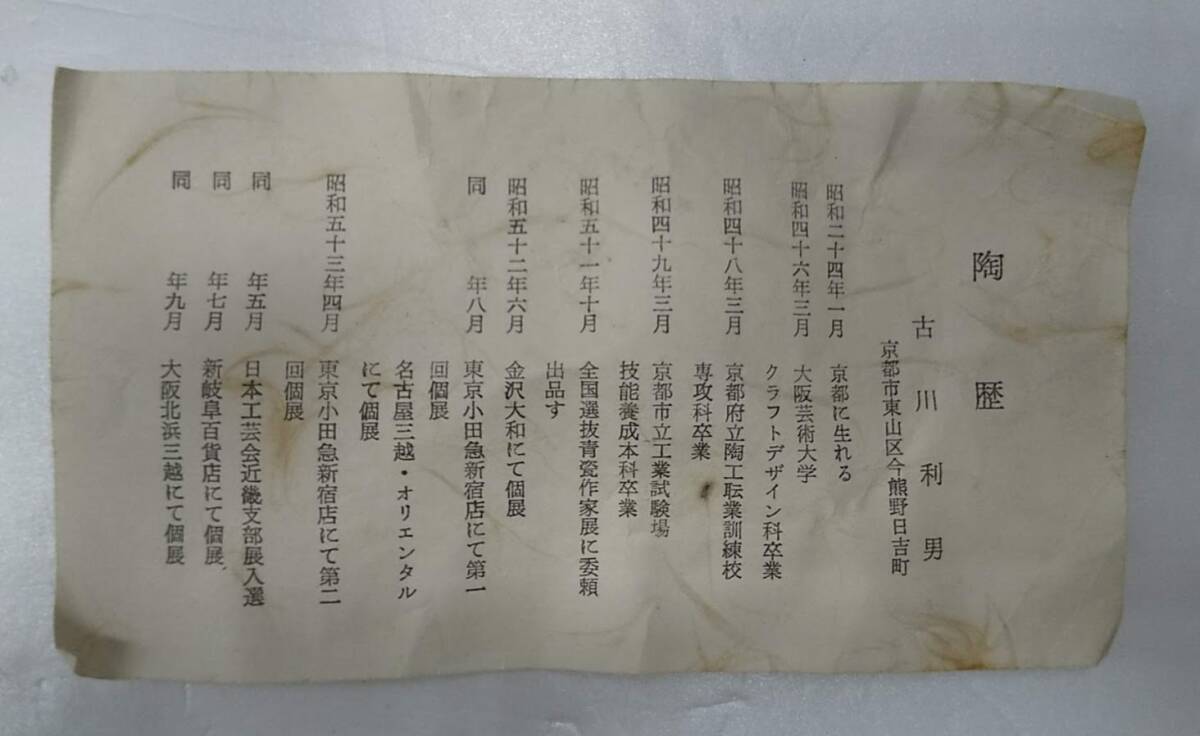 陶歴
古川利男
京都市東山区今熊野日吉町
昭和二十四年一月 京都に生れる
昭和四十六年三月 大阪芸術大学
クラフトデザイン科卒業
昭和四十八年三月 京都府立陶工転業訓練校
専攻科卒業
昭和四十九年三月 京都市立工業試験場
技能養成本科卒業
昭和五十一年十月 全国選抜青瓷作家展に委頼
出品す
昭和五十二年六月 金沢大和にて個展
同 年八月 東京小田急新宿店にて第一
回個展
名古屋三越・オリエンタル
にて個展
昭和五十三年四月 東京小田急新宿店にて第二
回個展
同 年五月 日本工芸会近畿支部展入選
同 年七月 新岐阜百貨店にて個展
同 年九月 大阪北浜三越にて個展